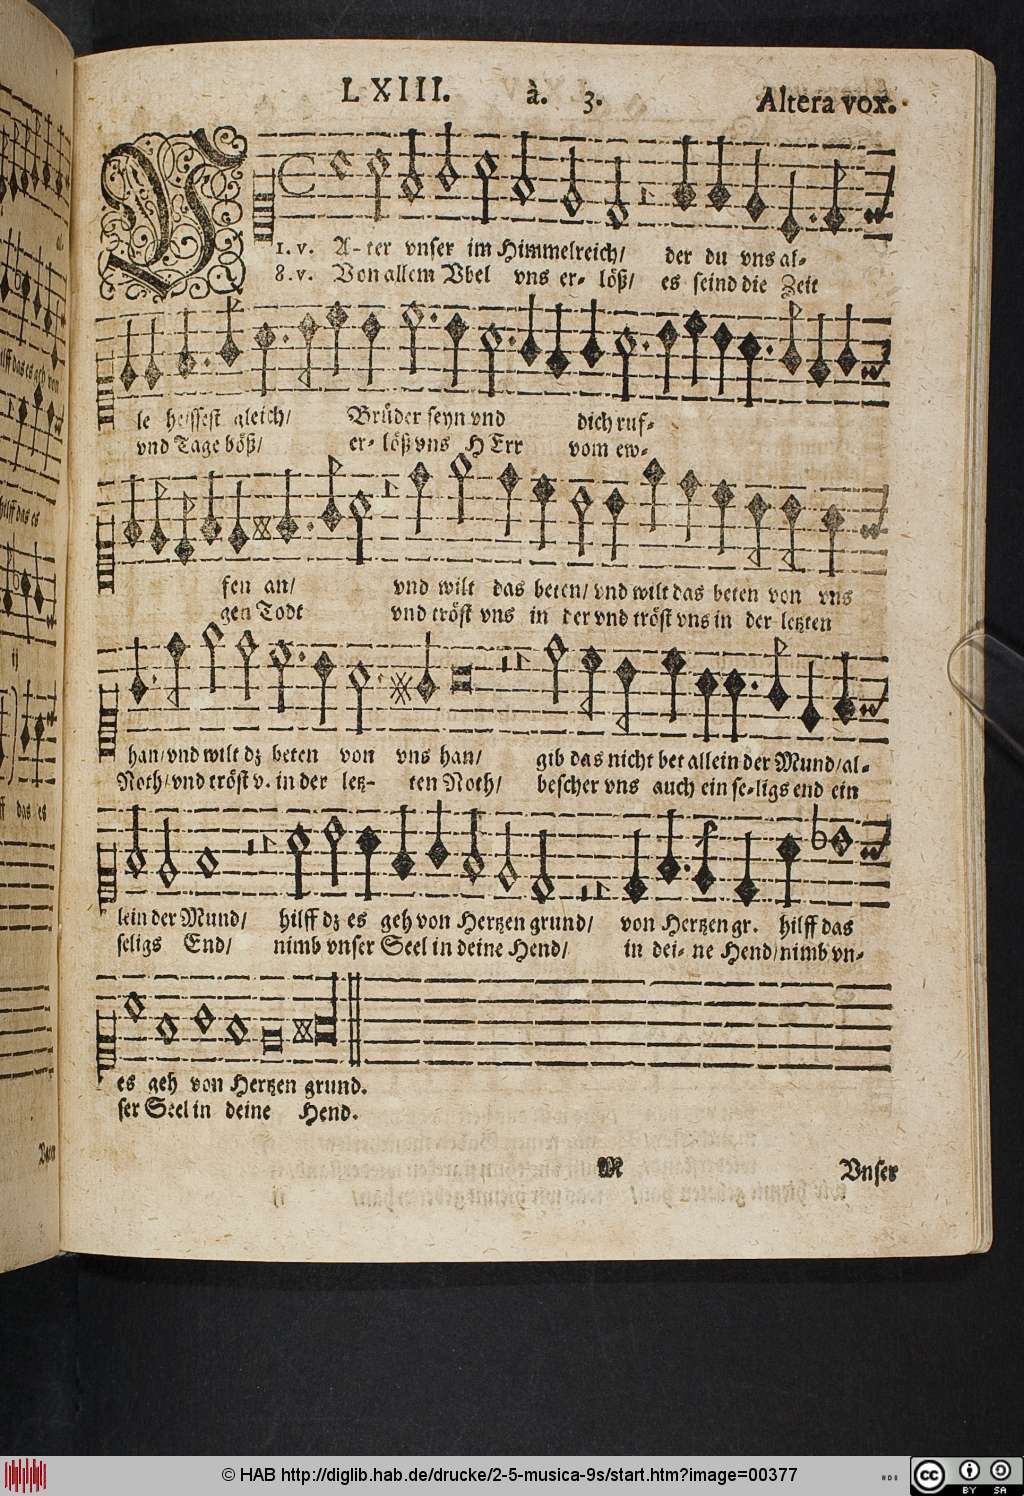 LXIII. à. 3. Altera vox.
V
1. v. A- ter vnser im Himmelreich/ der du vns al-
8. v. Von allem Vbel vns er- löß/ es seind die Zeit
le heissest gleich/ Brüder seyn vnd dich ruf-
vnd Tage böß/ er- löß vns HErr vom ew-
fen an/ vnd wilt das beten/ vnd wilt das beten von vns
gen Todt vnd tröst vns in der vnd tröst vns in der letzten
han/ vnd wilt dz beten von vns han/ gib das nicht bet allein der Mund/ al-
Noth/ vnd tröst v. in der letz- ten Noth/ bescher vns auch ein se-ligs end ein
lein der Mund/ hilff dz es geh von Hertzen grund/ von Hertzen gr. hilff das
seligs End/ nimb vnser Seel in deine Hend/ in dei- ne Hend/ nimb vn-
es geh von Hertzen grund.
ser Seel in deine Hend.
M Vnser
hilff das es geh von
hilff das es
ij
das es
© HAB http://diglib.hab.de/drucke/2-5-musica-9s/start.htm?image=00377
cc BY SA